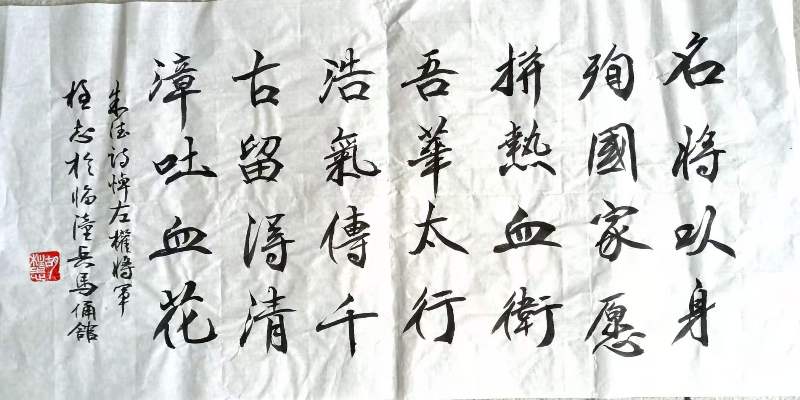 名将以身
殉國家愿
拼熱血衛
吾華太行
浩氣傳千
古留得清
漳吐血花
朱德詩悼左權將軍
志於临潼兵馬俑館